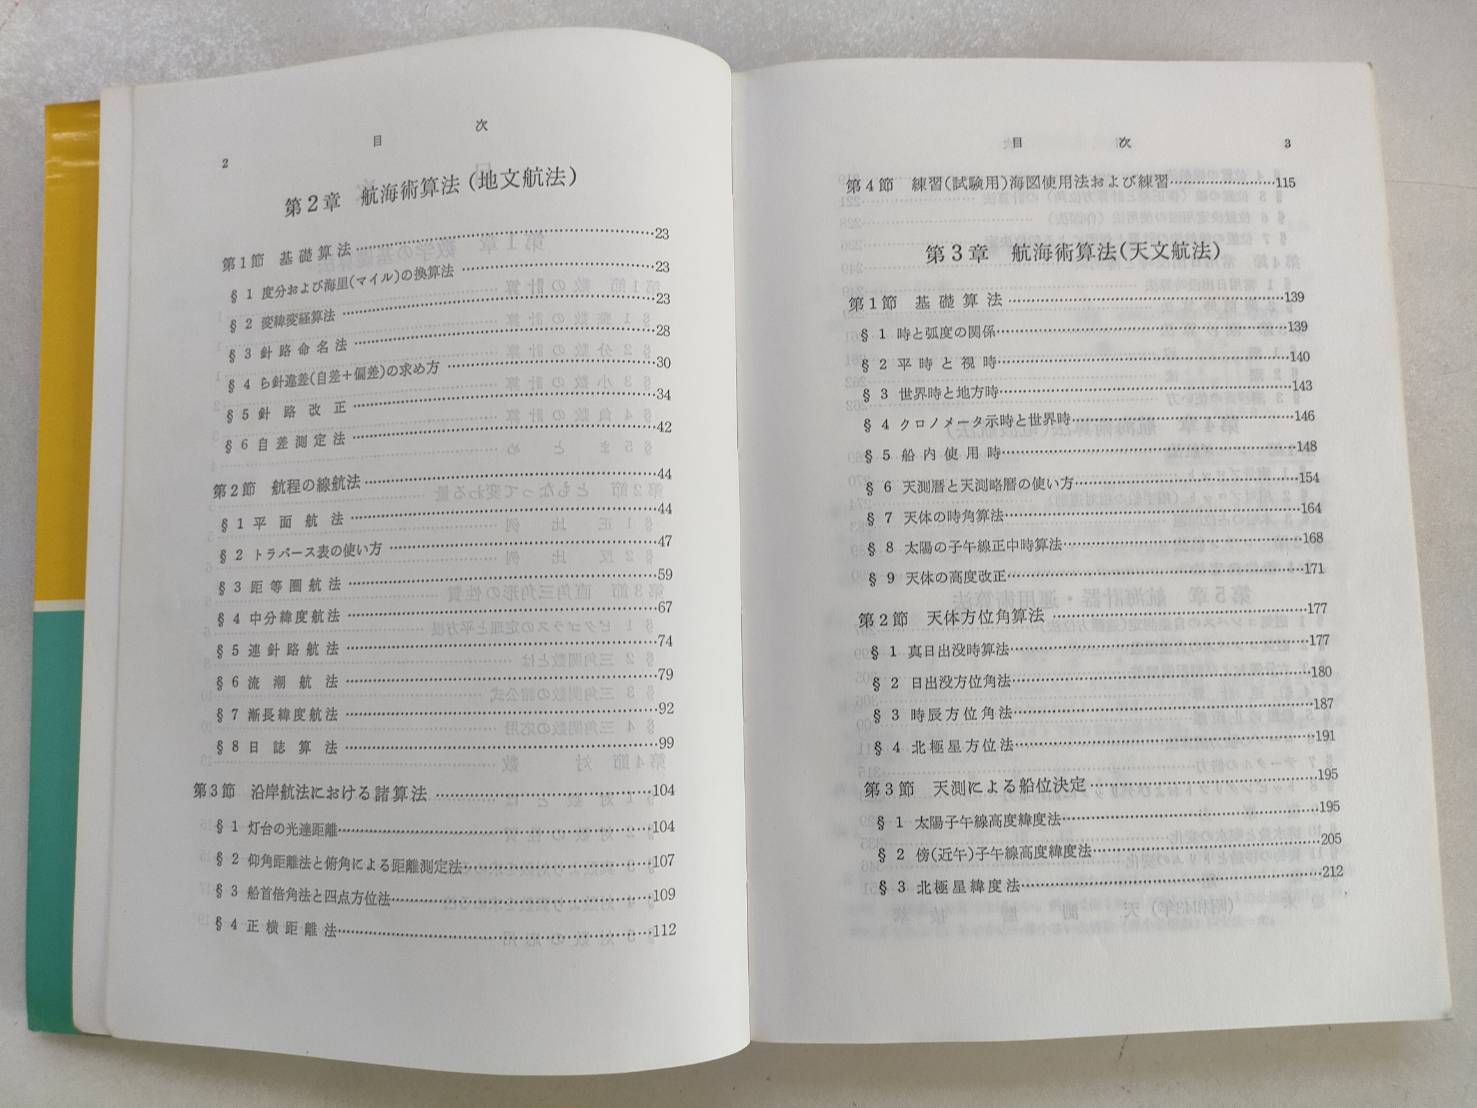 2 目 次
第2章 航海術算法(地文航法)
第1節 基礎算法……23
§1 度分および海里(マイル)の換算法……23
§2 変緯変経算法……23
§3 針路命名法……28
§4 ら針違差(自差+偏差)の求め方……30
§5 針路改正……34
§6 自差測定法……42
第2節 航程の線航法……44
§1 平面航法……44
§2 トラバース表の使い方……47
§3 距等圏航法……59
§4 中分緯度航法……67
§5 連針路航法……74
§6 流潮航法……79
§7 漸長緯度航法……92
§8 日誌算法……99
第3節 沿岸航法における諸算法……104
§1 灯台の光達距離……104
§2 仰角距離法と俯角による距離測定法……107
§3 船首倍角法と四点方位法……109
§4 正横距離法……112
目 次 3
第4節 練習(試験用)海図使用法および練習……115
第3章 航海術算法(天文航法)
第1節 基礎算法……139
§1 時と弧度の関係……139
§2 平時と視時……140
§3 世界時と地方時……143
§4 クロノメータ示時と世界時……146
§5 船内使用時……148
§6 天測暦と天測略暦の使い方……154
§7 天体の時角算法……164
§8 太陽の子午線正中時算法……168
§9 天体の高度改正……171
第2節 天体方位角算法……177
§1 真日出没時算法……177
§2 日出没方位角法……180
§3 時辰方位角法……187
§4 北極星方位法……191
第3節 天測による船位決定……195
§1 太陽子午線高度緯度法……195
§2 傍(近午)子午線高度緯度法……205
§3 北極星緯度法……212